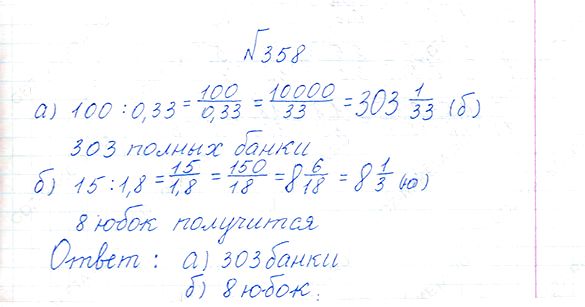 №358
а) 100 : 0,33 = 100/0,33 = 10000/33 = 303 1/33 (б)
303 полных банки
б) 15 : 1,8 = 15/1,8 = 150/18 = 8 6/18 = 8 1/3 (ю)
8 юбок получится
Ответ : а) 303 банки
б) 8 юбок.